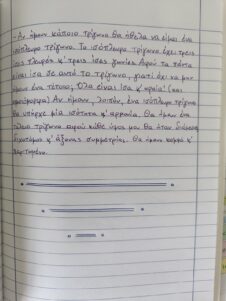 - Αν ήμουν κάποιο τρίγωνο θα ήθελα να είμαι ένα
ισόπλευρο τρίγωνο. Το ισόπλευρο τρίγωνο έχει τρεις
ίσες πλευρές κ' τρεις ίσες γωνίες. Αφού τα πάντα
είναι ίσα σε αυτό το τρίγωνο, γιατί όχι να μην
ήμουν ένα τέτοιο; Όλα είναι ίσα κ' ωραία! (και
ισορρόπημένα) Αν ήμουν, λοιπόν, ένα ισόπλευρο τρίγωνο
θα υπήρχε μία ισότητα κ' αρμονία. Θα ήμουν ένα
τέλειο τρίγωνο αφού κάθε ύψος μου θα ήταν διάμεσος,
διχοτόμος κ' άξονας συμμετρίας. Θα ήμουν κομψό κ'
χαριτωμένο.